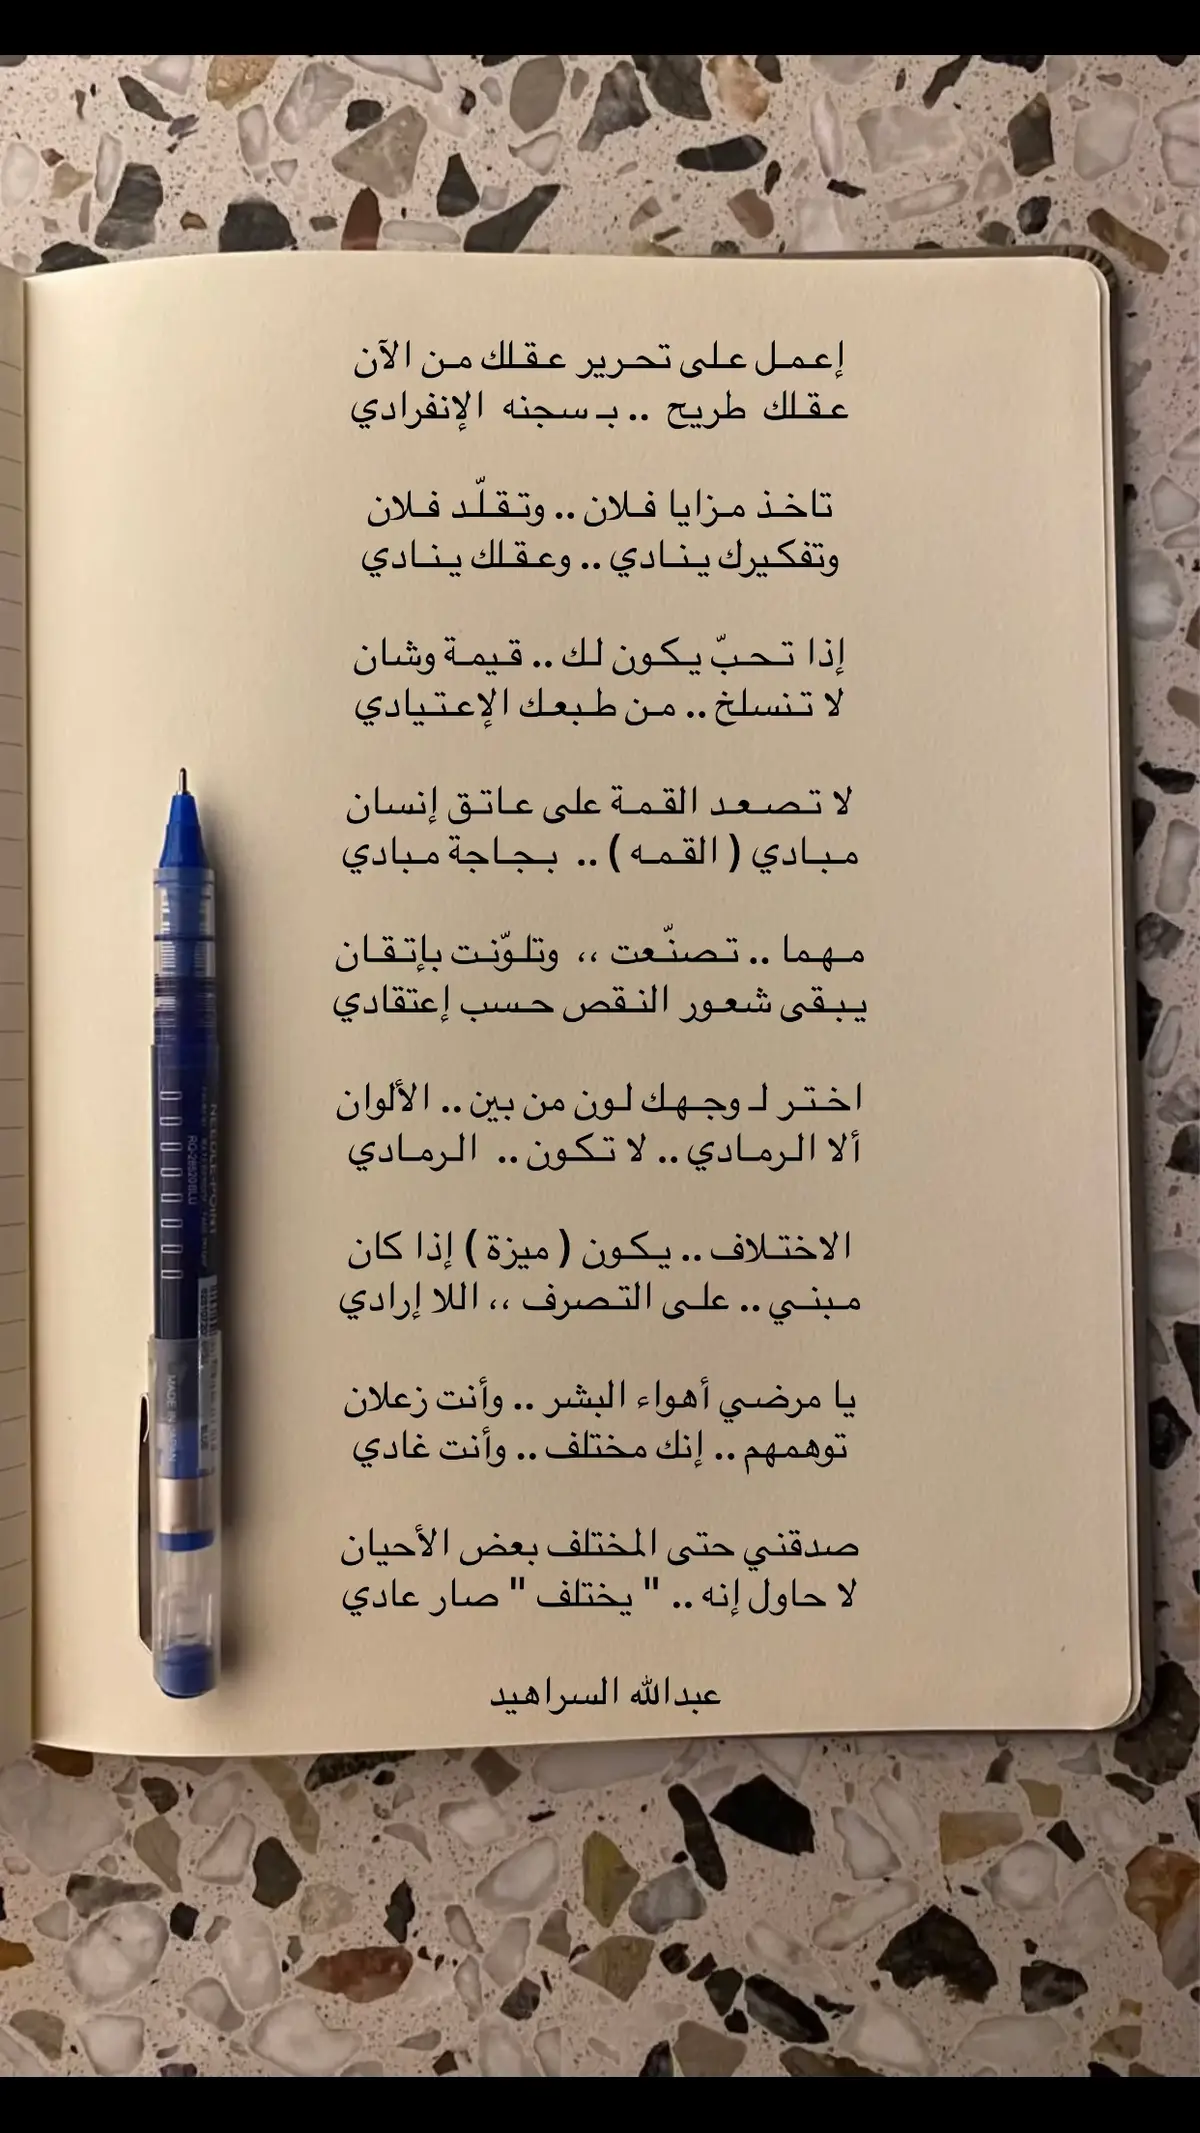 إعمل على تحرير عقلك من الآن
عقلك طريح .. بـ سجنه الإنفرادي
تاخذ مزايا فلان .. وتقلّد فلان
وتفكيرك ينادي .. وعقلك ينادي
إذا تحبّ يكون لك .. قيمة وشان
لا تنسلخ .. من طبعك الإعتيادي
لا تصعد القمة على عاتق إنسان
مبادي ( القمه ) .. بجاجة مبادي
مهما .. تصنّعت ،، وتلوّنت بإتقان
يبقى شعور النقص حسب إعتقادي
اختر لـ وجهك لون من بين .. الألوان
ألا الرمادي .. لا تكون .. الرمادي
الاختلاف .. يكون ( ميزة ) إذا كان
مبني .. على التصرف ،، اللا إرادي
يا مرضي أهواء البشر .. وأنت زعلان
توهمهم .. إنك مختلف .. وأنت غادي
صدقني حتى المختلف بعض الأحيان
لا حاول إنه .. " يختلف " صار عادي
عبدالله السراهيد
NEEDLE-POINT
MADE IN